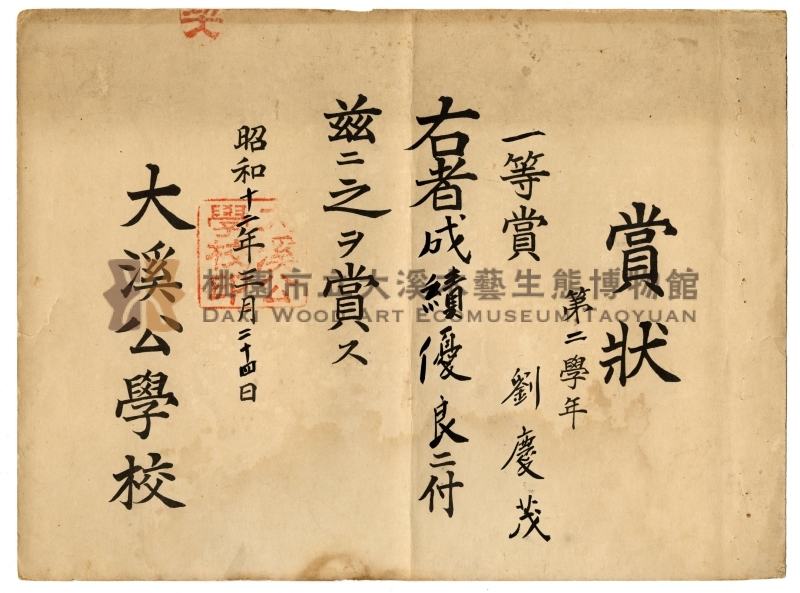 賞狀
第二學年
一等賞 劉慶茂
右者成績優良ニ付
茲ニ之ヲ賞ス
昭和十二年三月二十四日
大溪公學校
大溪公
學校印
桃園市立大溪木藝生態博物館
DAXI WOOD ART ECOMUSEUM, TAOYUAN